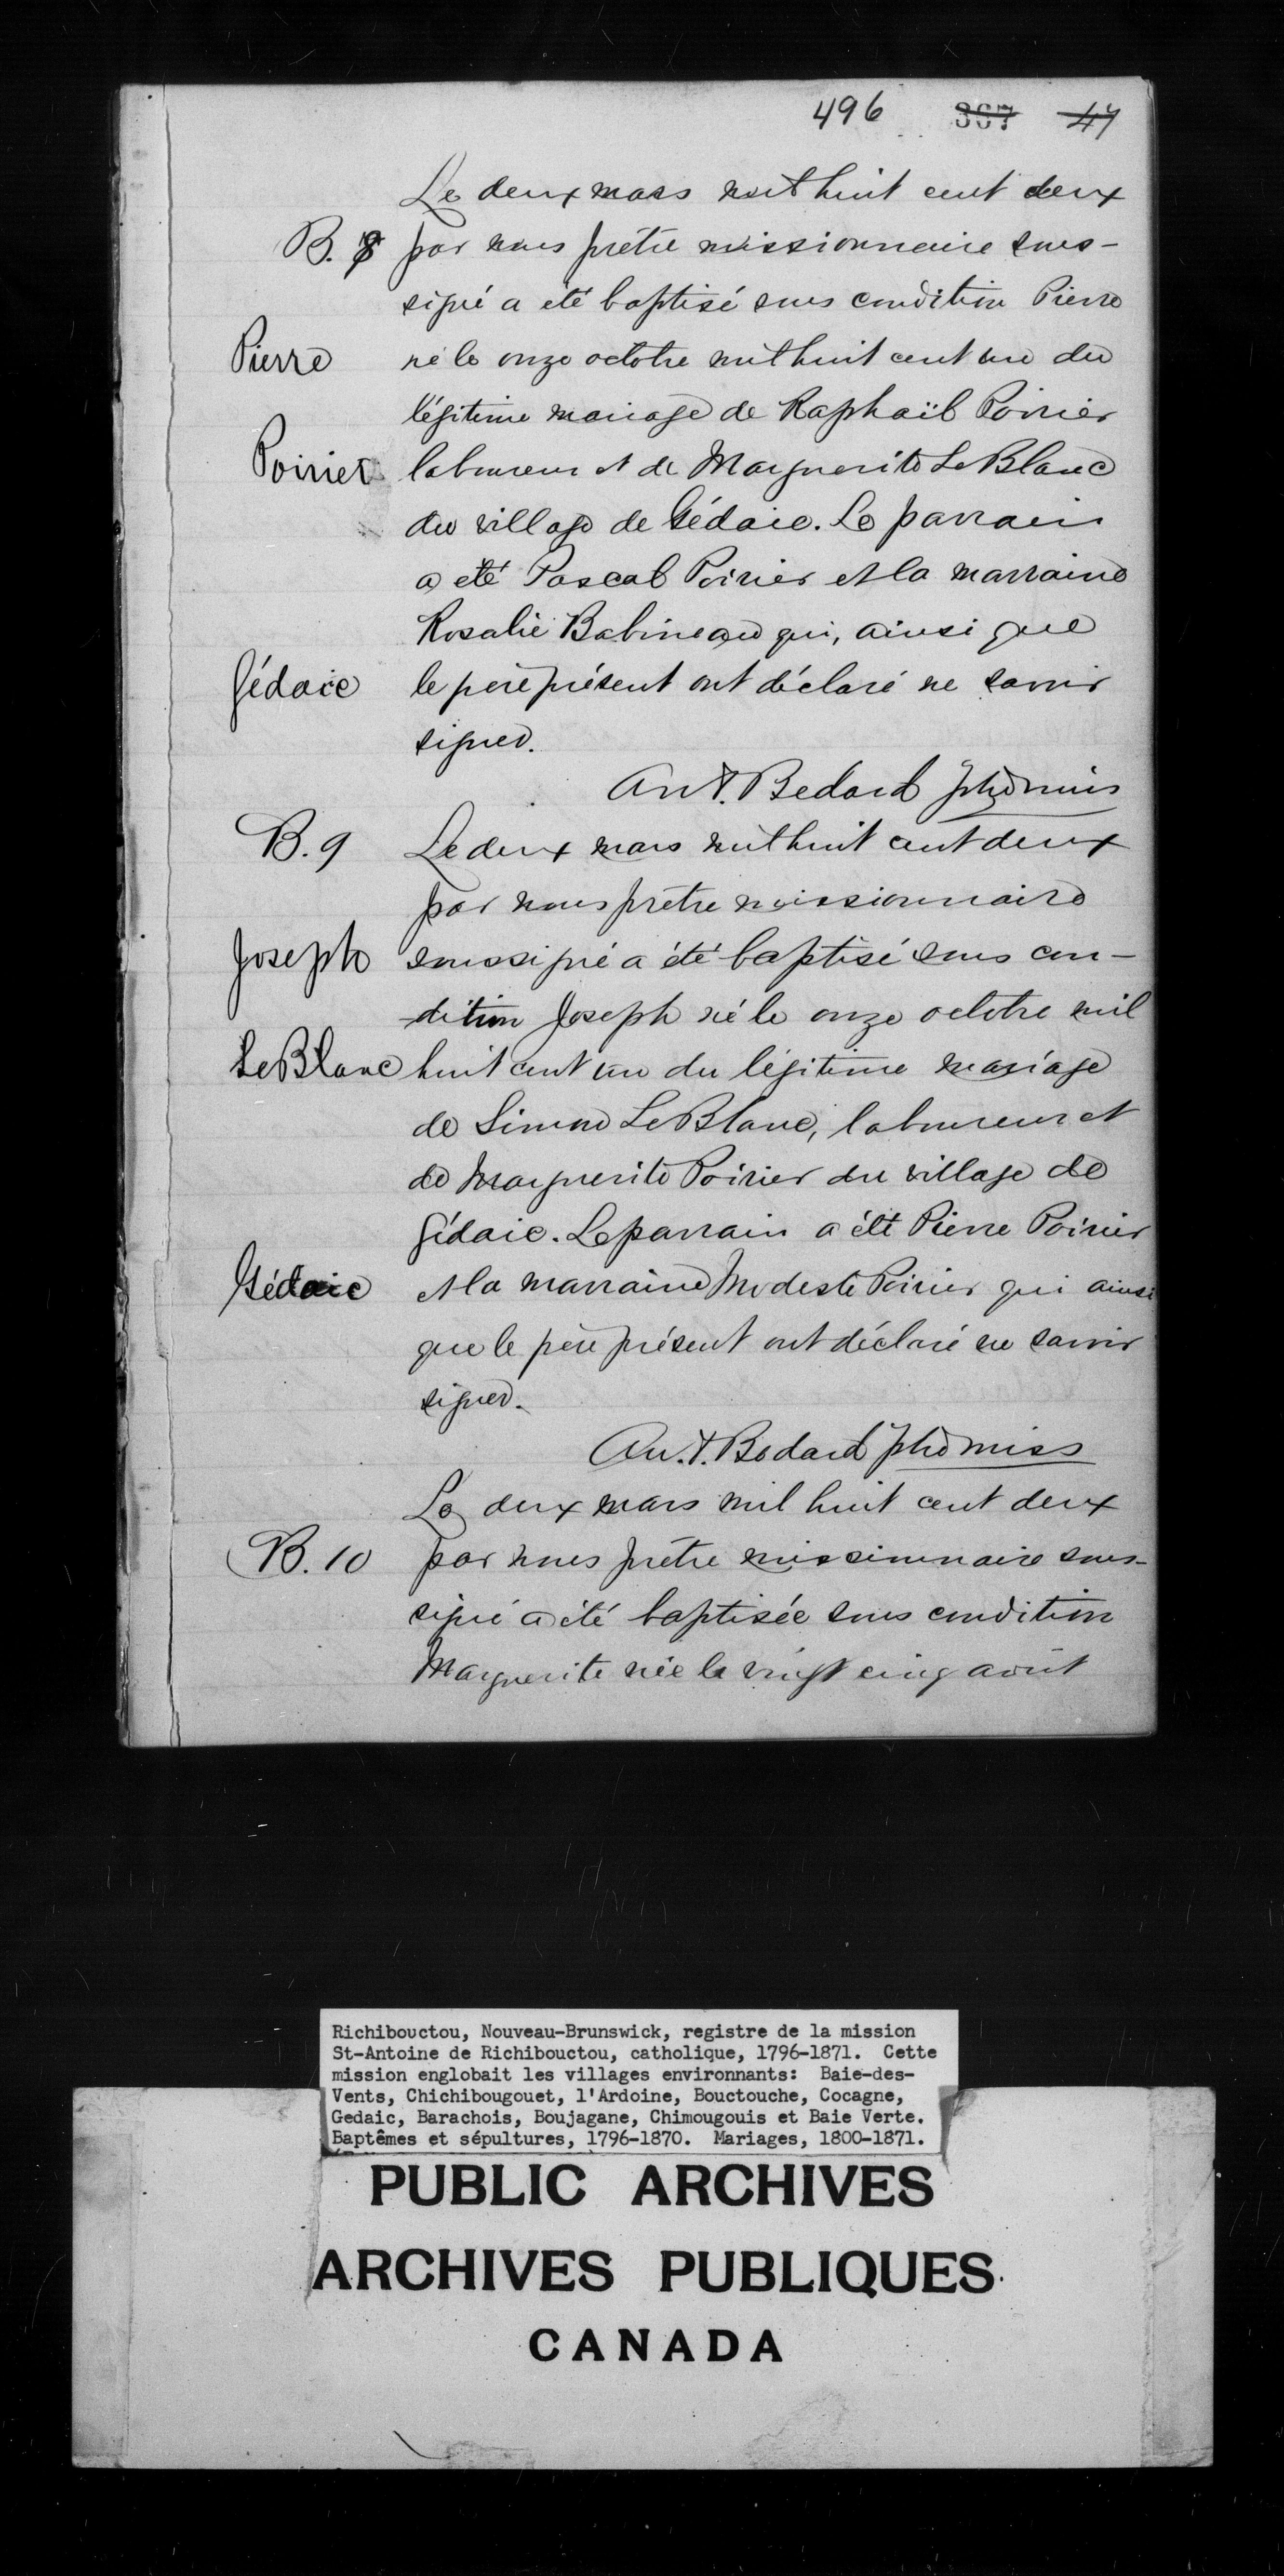 496 367 47
Le deux mars mil huit cent deux
B. 8 par nous prêtre missionnaire sous-
signé a été baptisé sous condition Pierre
Pierre né le onze octobre mil huit cent un du
légitime mariage de Raphaël Poirier
Poirier laboureur et de Marguerite LeBlanc
du village de Gédaic. Le parrain
a été Pascal Poirier et la marraine
Rosalie Babineau qui, ainsi que
Gédaic le père présent ont déclaré ne savoir
signer.
Ant. Bedard ptre miss
B. 9 Le deux mars mil huit cent deux
par nous prêtre missionnaire
Joseph soussigné a été baptisé sous con-
dition Joseph né le onze octobre mil
LeBlanc huit cent un du légitime mariage
de Simon LeBlanc, laboureur et
de Marguerite Poirier du village de
Gédaic. Le parrain a été Pierre Poirier
Gédaic et la marraine Modeste Poirier qui ainsi
que le père présent ont déclaré ne savoir
signer.
Ant. Bedard ptre miss
Le deux mars mil huit cent deux
B. 10 par nous prêtre missionnaire sous-
signé a été baptisée sous condition
Marguerite née le vingt cinq août
Richibouctou, Nouveau-Brunswick, registre de la mission
St-Antoine de Richibouctou, catholique, 1796-1871. Cette
mission englobait les villages environnants: Baie-des-
Vents, Chichibougouet, l'Ardoine, Bouctouche, Cocagne,
Gedaic, Barachois, Boujagane, Chimougouis et Baie Verte.
Baptêmes et sépultures, 1796-1870. Mariages, 1800-1871.
PUBLIC ARCHIVES
ARCHIVES PUBLIQUES
CANADA